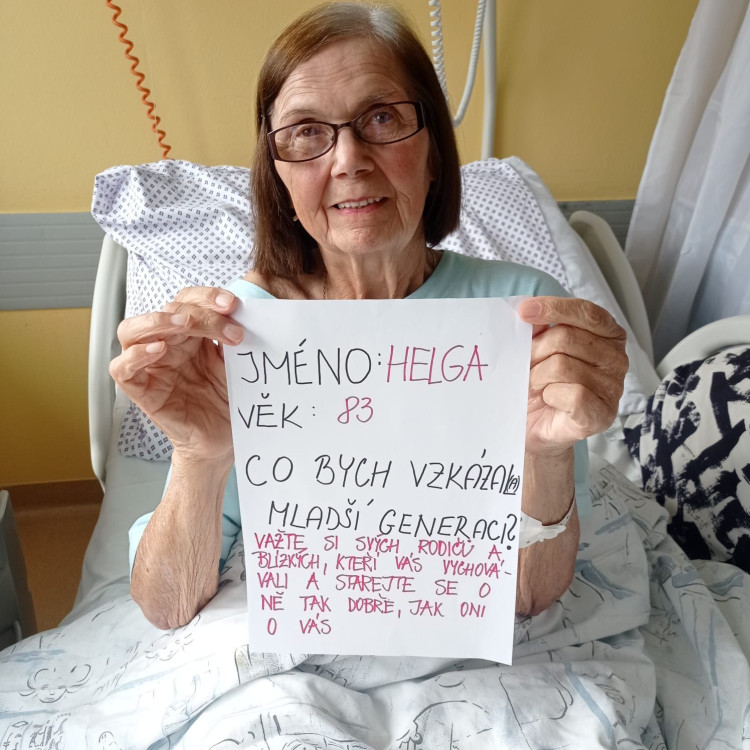 JMÉNO: HELGA
VĚK: 83
CO BYCH VZKÁZAL(A)
MLADŠÍ GENERACI?
VAŽTE SI SVÝCH RODIČŮ A
BLÍZKÝCH, KTEŘÍ VÁS VYCHOVÁ-
VALI A STAREJTE SE O
NĚ TAK DOBŘE, JAK ONI
O VÁS